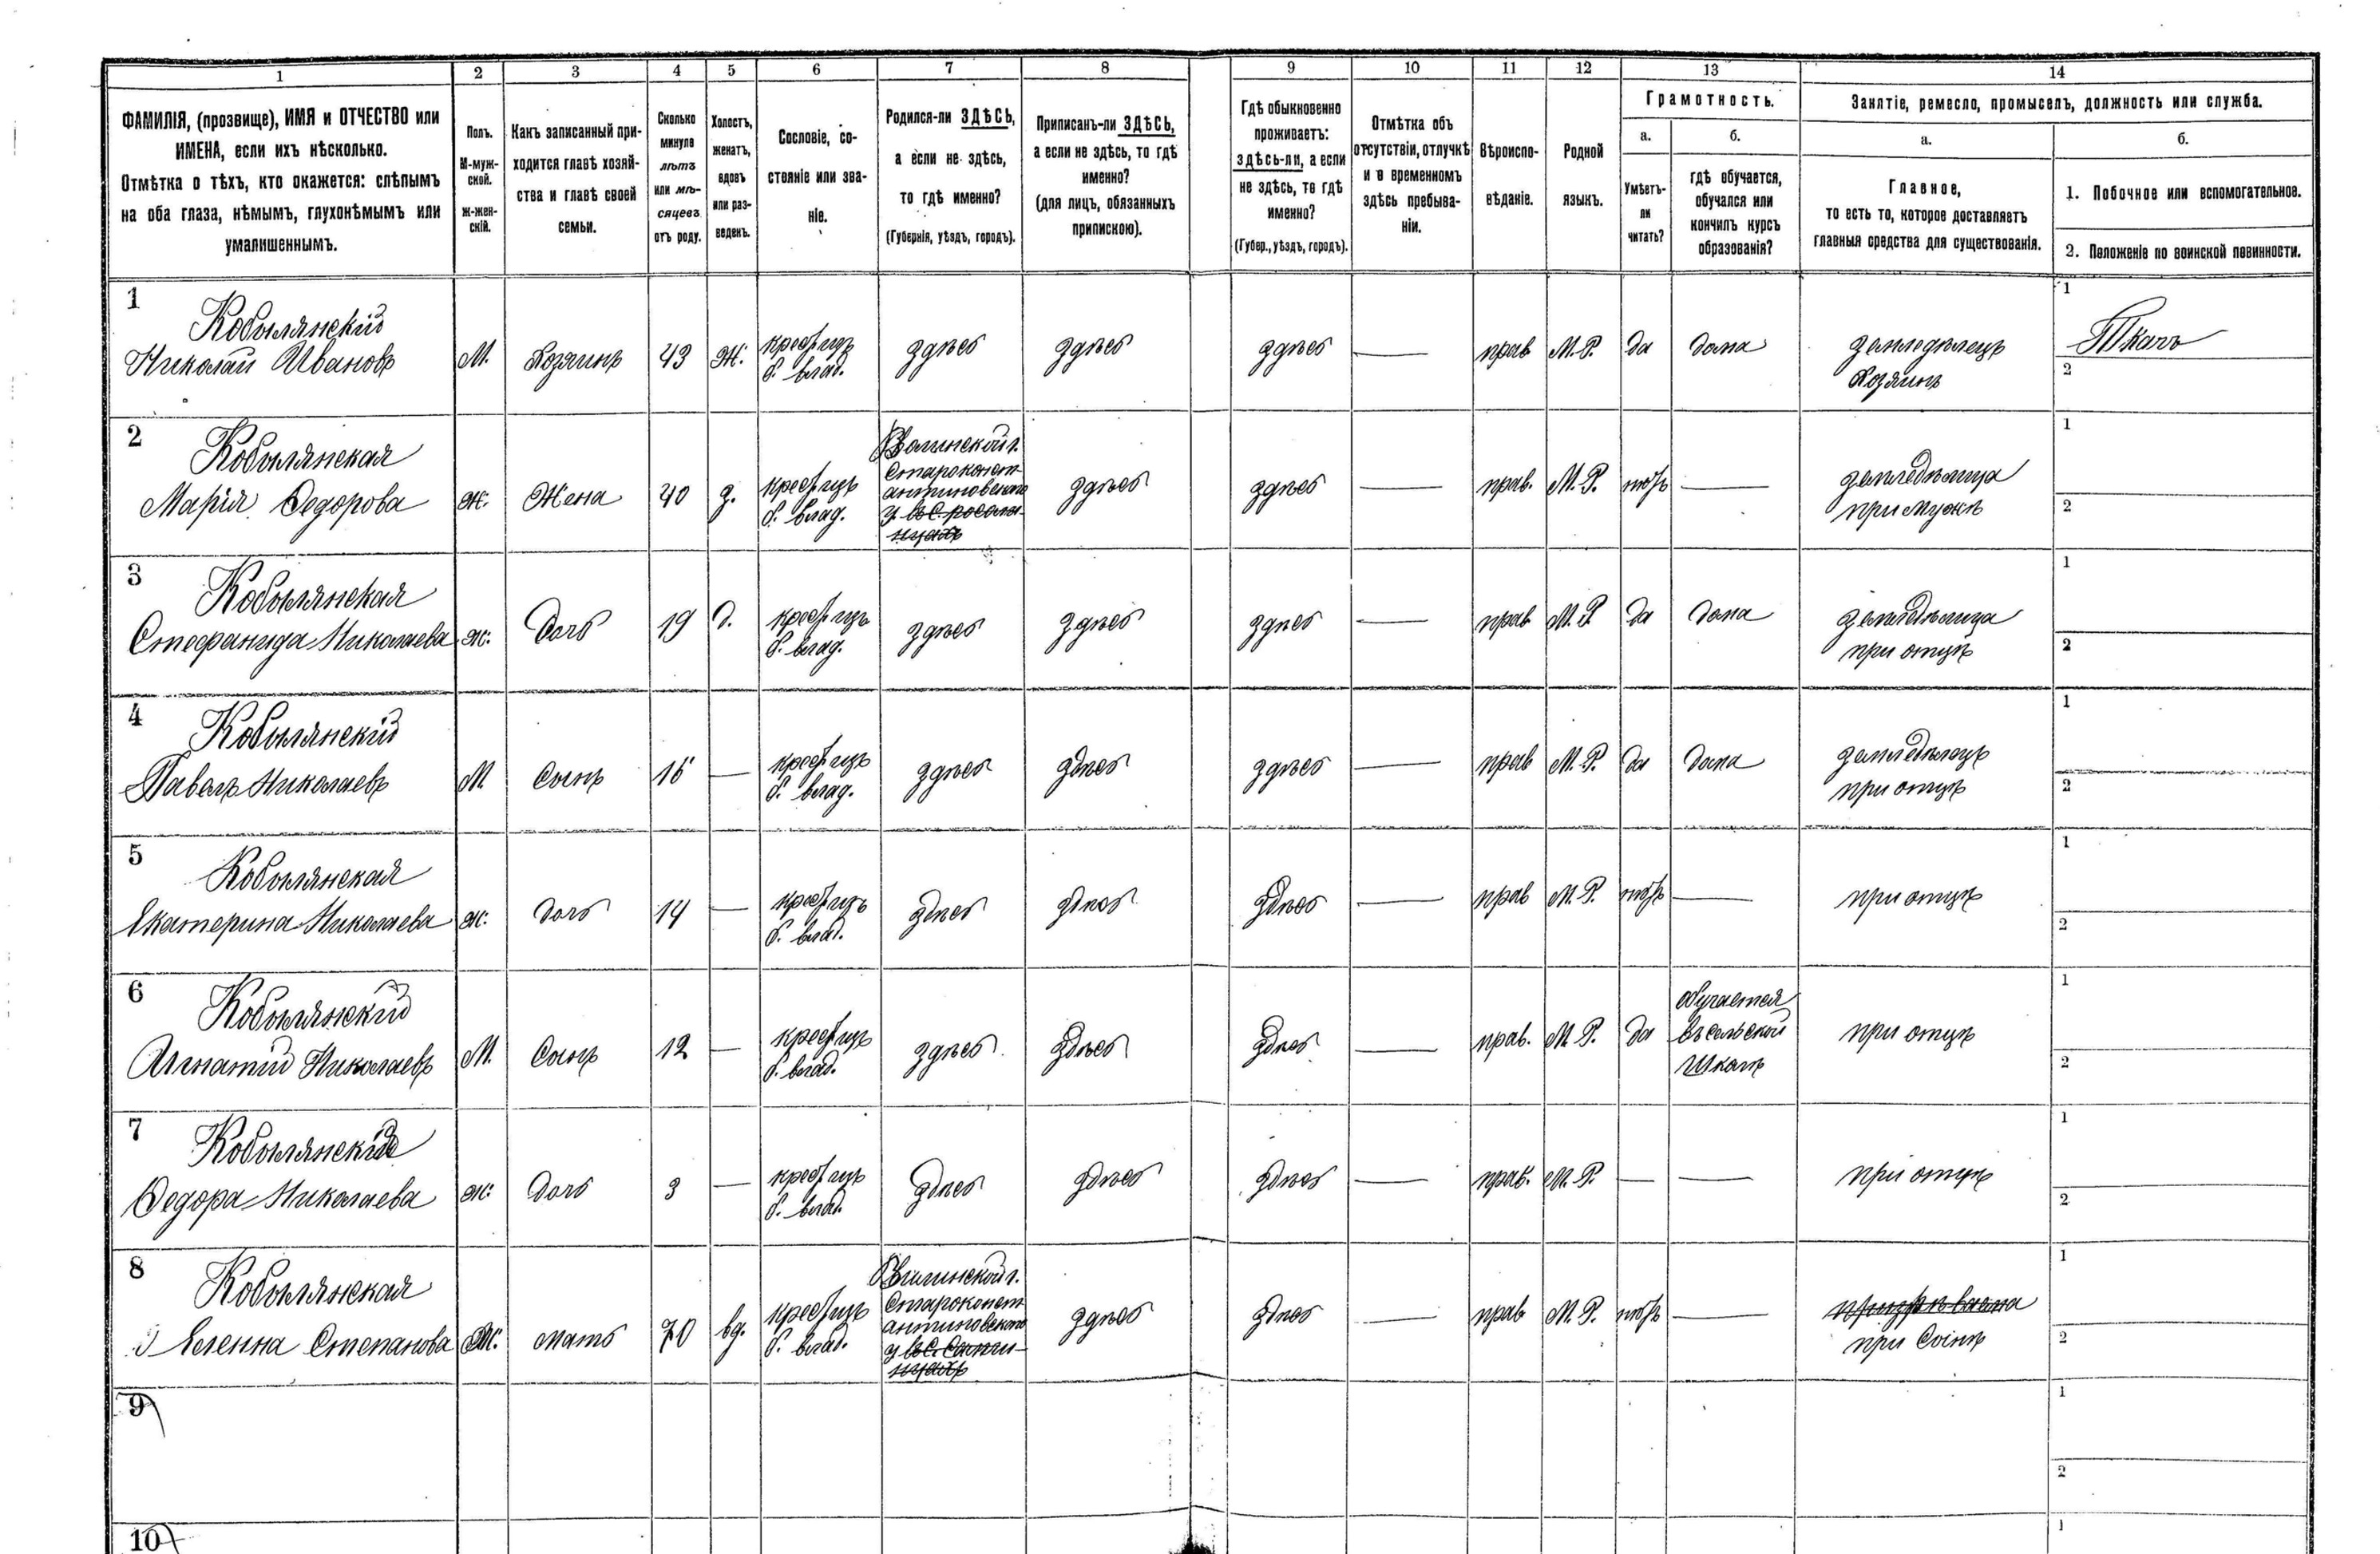 1 2 3 4 5 6 7 8 9 10 11 12 13 14
ФАМИЛІЯ, (прозвище), ИМЯ и ОТЧЕСТВО или
ИМЕНА, если ихъ нѣсколько.
Отмѣтка о тѣхъ, кто окажется: слѣпымъ
на оба глаза, нѣмымъ, глухонѣмымъ или
умалишеннымъ.
Полъ.
М-муж-
ской.
ж-жен-
скій.
Какъ записанный при-
ходится главѣ хозяй-
ства и главѣ своей
семьи.
Сколько
минуло
лѣтъ
или мѣ-
сяцевъ
отъ роду.
Холостъ,
женатъ,
вдовъ
или раз-
веденъ.
Сословіе, со-
стояніе или зва-
ніе.
Родился-ли ЗДѢСЬ,
а если не здѣсь,
то гдѣ именно?
(Губернія, уѣздъ, городъ).
Приписанъ-ли ЗДѢСЬ,
а если не здѣсь, то гдѣ
именно?
(для лицъ, обязанныхъ
припискою).
Гдѣ обыкновенно
проживаетъ:
здѣсь-ли, а если
не здѣсь, то гдѣ
именно?
(Губер., уѣздъ, городъ).
Отмѣтка объ
отсутствіи, отлучкѣ
и о временномъ
здѣсь пребыва-
ніи.
Вѣроиспо-
вѣданіе.
Родной
языкъ.
Грамотность.
а.
Умѣетъ-
ли
читать?
б.
гдѣ обучается,
обучался или
кончилъ курсъ
образованія?
Занятіе, ремесло, промыселъ, должность или служба.
а.
Главное,
то есть то, которое доставляетъ
главныя средства для существованія.
б.
1. Побочное или вспомогательное.
2. Положеніе по воинской повинности.
1
Кобылянскій
Николай Ивановъ
М.
Хозяинъ
43
Ж.
крест изъ
б. влад.
здѣсь
здѣсь
здѣсь
—
прав
М.Р.
да
дома
земледѣлецъ
Хозяинъ
1
Ткачъ
2
2
Кобылянская
Марія Федорова
ж.
Жена
40
з.
крест изъ
б. влад.
Волынской г.
Староконст
антиновскаго
у. въ с. росоло
вцахъ
здѣсь
здѣсь
—
прав.
М.Р.
нѣтъ
—
земледѣлица
при мужѣ
1
2
3
Кобылянская
Стефанида Николаева
ж.
Дочь
19
д.
крест изъ
б. влад.
здѣсь
здѣсь
здѣсь
—
прав
М.Р.
да
дома
земледѣлица
при отцѣ
1
2
4
Кобылянскій
Павелъ Николаевъ
М.
Сынъ
16
—
крест изъ
б. влад.
здѣсь
здѣсь
здѣсь
—
прав
М.Р.
да
дома
земледѣлецъ
при отцѣ
1
2
5
Кобылянская
Екатерина Николаева
ж.
дочь
14
—
крест изъ
б. влад.
здѣсь
здѣсь
здѣсь
—
прав
М.Р.
нѣтъ
—
при отцѣ
1
2
6
Кобылянскій
Игнатій Николаевъ
М.
Сынъ
12
—
крест изъ
б. влад.
здѣсь
здѣсь
здѣсь
—
прав.
М.Р.
да
обучается
въ сельской
школѣ
при отцѣ
1
2
7
Федора Николаева
ж.
дочь
3
—
крест изъ
б. влад.
здѣсь
здѣсь
здѣсь
—
прав.
М.Р.
—
—
при отцѣ
1
2
8
Кобылянская
Еленна Степанова
Ж.
мать
70
вд.
крест изъ
б. влад.
Волынской г.
Староконст
антиновскаго
у въ с.
здѣсь
здѣсь
—
прав
М.Р.
нѣтъ
—
при Сынѣ
1
2
9
1
2
10
1